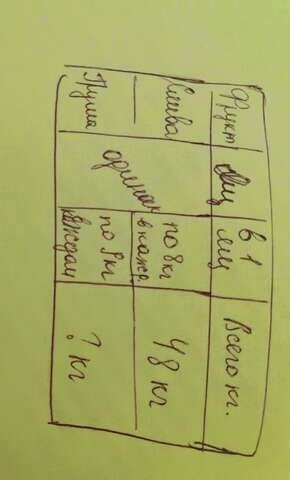 Фрукт
Ящ
В 1
ящ
Всего кг.
Слива
одинак
по 8 кг
в кажд.
48 кг
Груша
по 9 кг
каждом
? кг